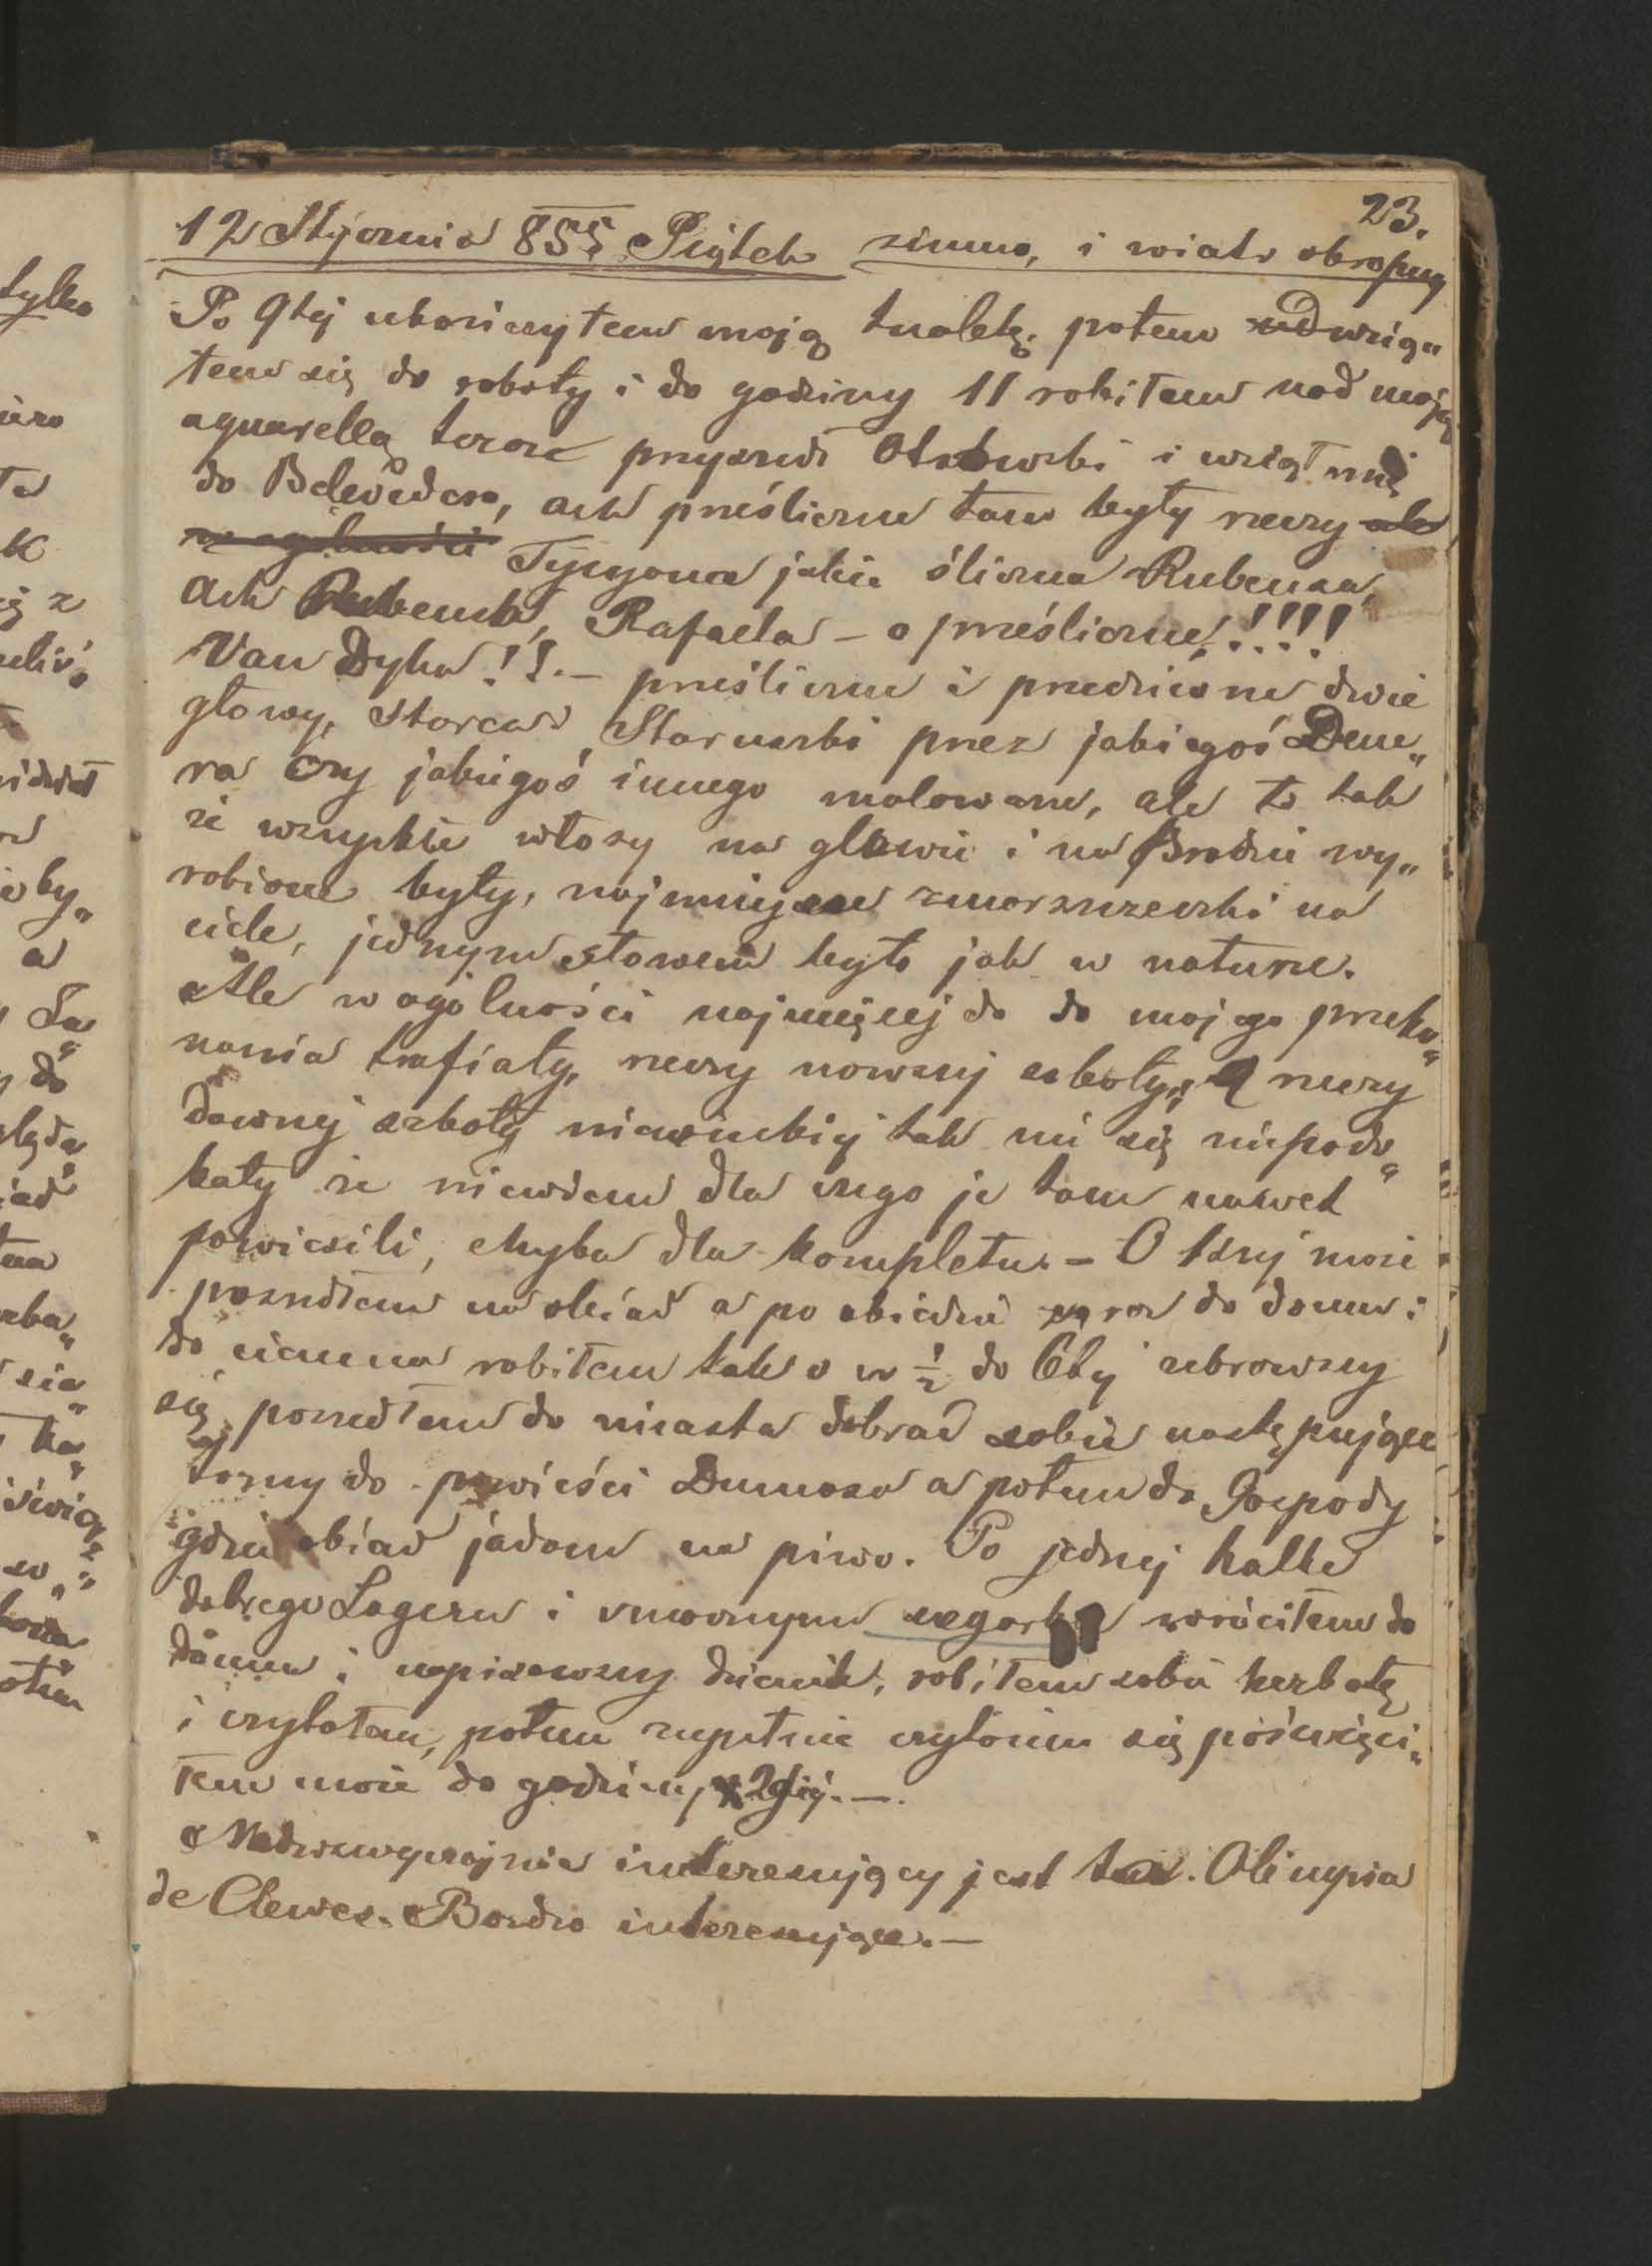 23.
12 Stycznia 855 Piątek zimno, i wiatr okropny
Po 9tej ukończyłem moją tualetę. potem wzią„
łem się do roboty i do godziny 11 robiłem nad moją
aquarellą teraz przyszedł i wziął mię
do Belevedera, ach prześliczne tam były rzeczy ale
w ogólności Tycyana jakie śliczne Rubensa,
ach Rubensa, Rafaela – o prześliczne!!!!!
Van Dyka!!.– prześliczne i przedziwne dwie
głowy, starca i Staruszki przez jakiegoś Dene„
ra czy jakiegoś innego malowane, ale to tak
że wszystkie włosy na głowie i na Brodzie wy„
robione były, najmniejsze zmarszczeczki na
ciele, jednym słowem było jak w naturze.
Ale w ogólności najwięcej do do mojego przeko„
nania trafiały, rzeczy nowszej szkoły, a rzeczy
dawnej szkoły niemieckiej tak mi się niepodo„
bały że niewiem dla czego je tam nawet
powiesili, chyba dla kompletu. – O 1szej może
poszedłem na obiad a po obiedzie zaraz do domu i
do ciemna robiłem tak o w ½ do 6tej ubrawszy
się poszedłem do miasta dobrać sobie następujące
tomy do powieści Dumasa a potem do Gospody
gdzie obiad jadam na piwo. Po jednej halbe
dobrego Lageru i wróciłem do
domu i napisawszy dziennik, robiłem sobie herbatę
i czytałem, potem zupełnie czytaniu się poświęci„
łem może do godziny 2giej.–.
Nadzwyczajnie interesujący jest Olimpia
de Clewes. Bardzo interesujące.–
tylko